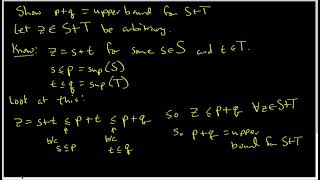 Show p+q = upper bound for S+T
Let z ∈ S+T be arbitrary.
Know: z = s+t for some s∈S and t∈T.
s ≤ p = sup(S)
t ≤ q = sup(T)
Look at this:
z = s+t ≤ p+t ≤ p+q so z ≤ p+q ∀z∈S+T
b/c s≤p b/c t≤q so p+q = upper
bound for S+T